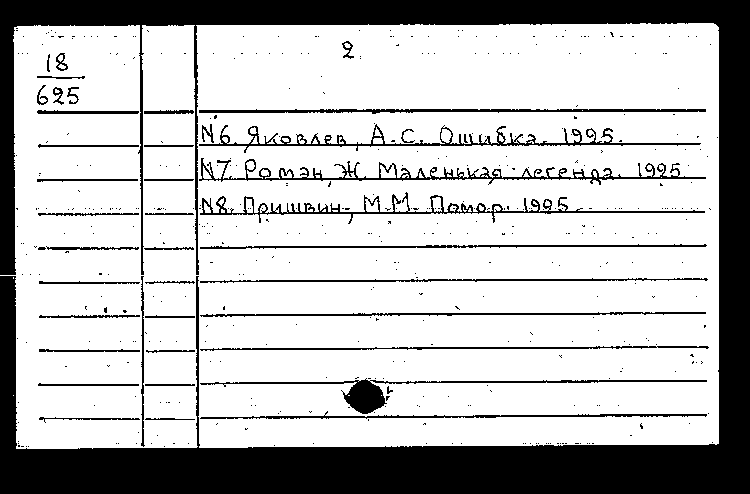 18
625
2
N6. Яковлев, А.С. Ошибка. 1925.
N7. Ромэн, Ж. Маленькая легенда. 1925
N8. Пришвин, М.М. Помор. 1925.